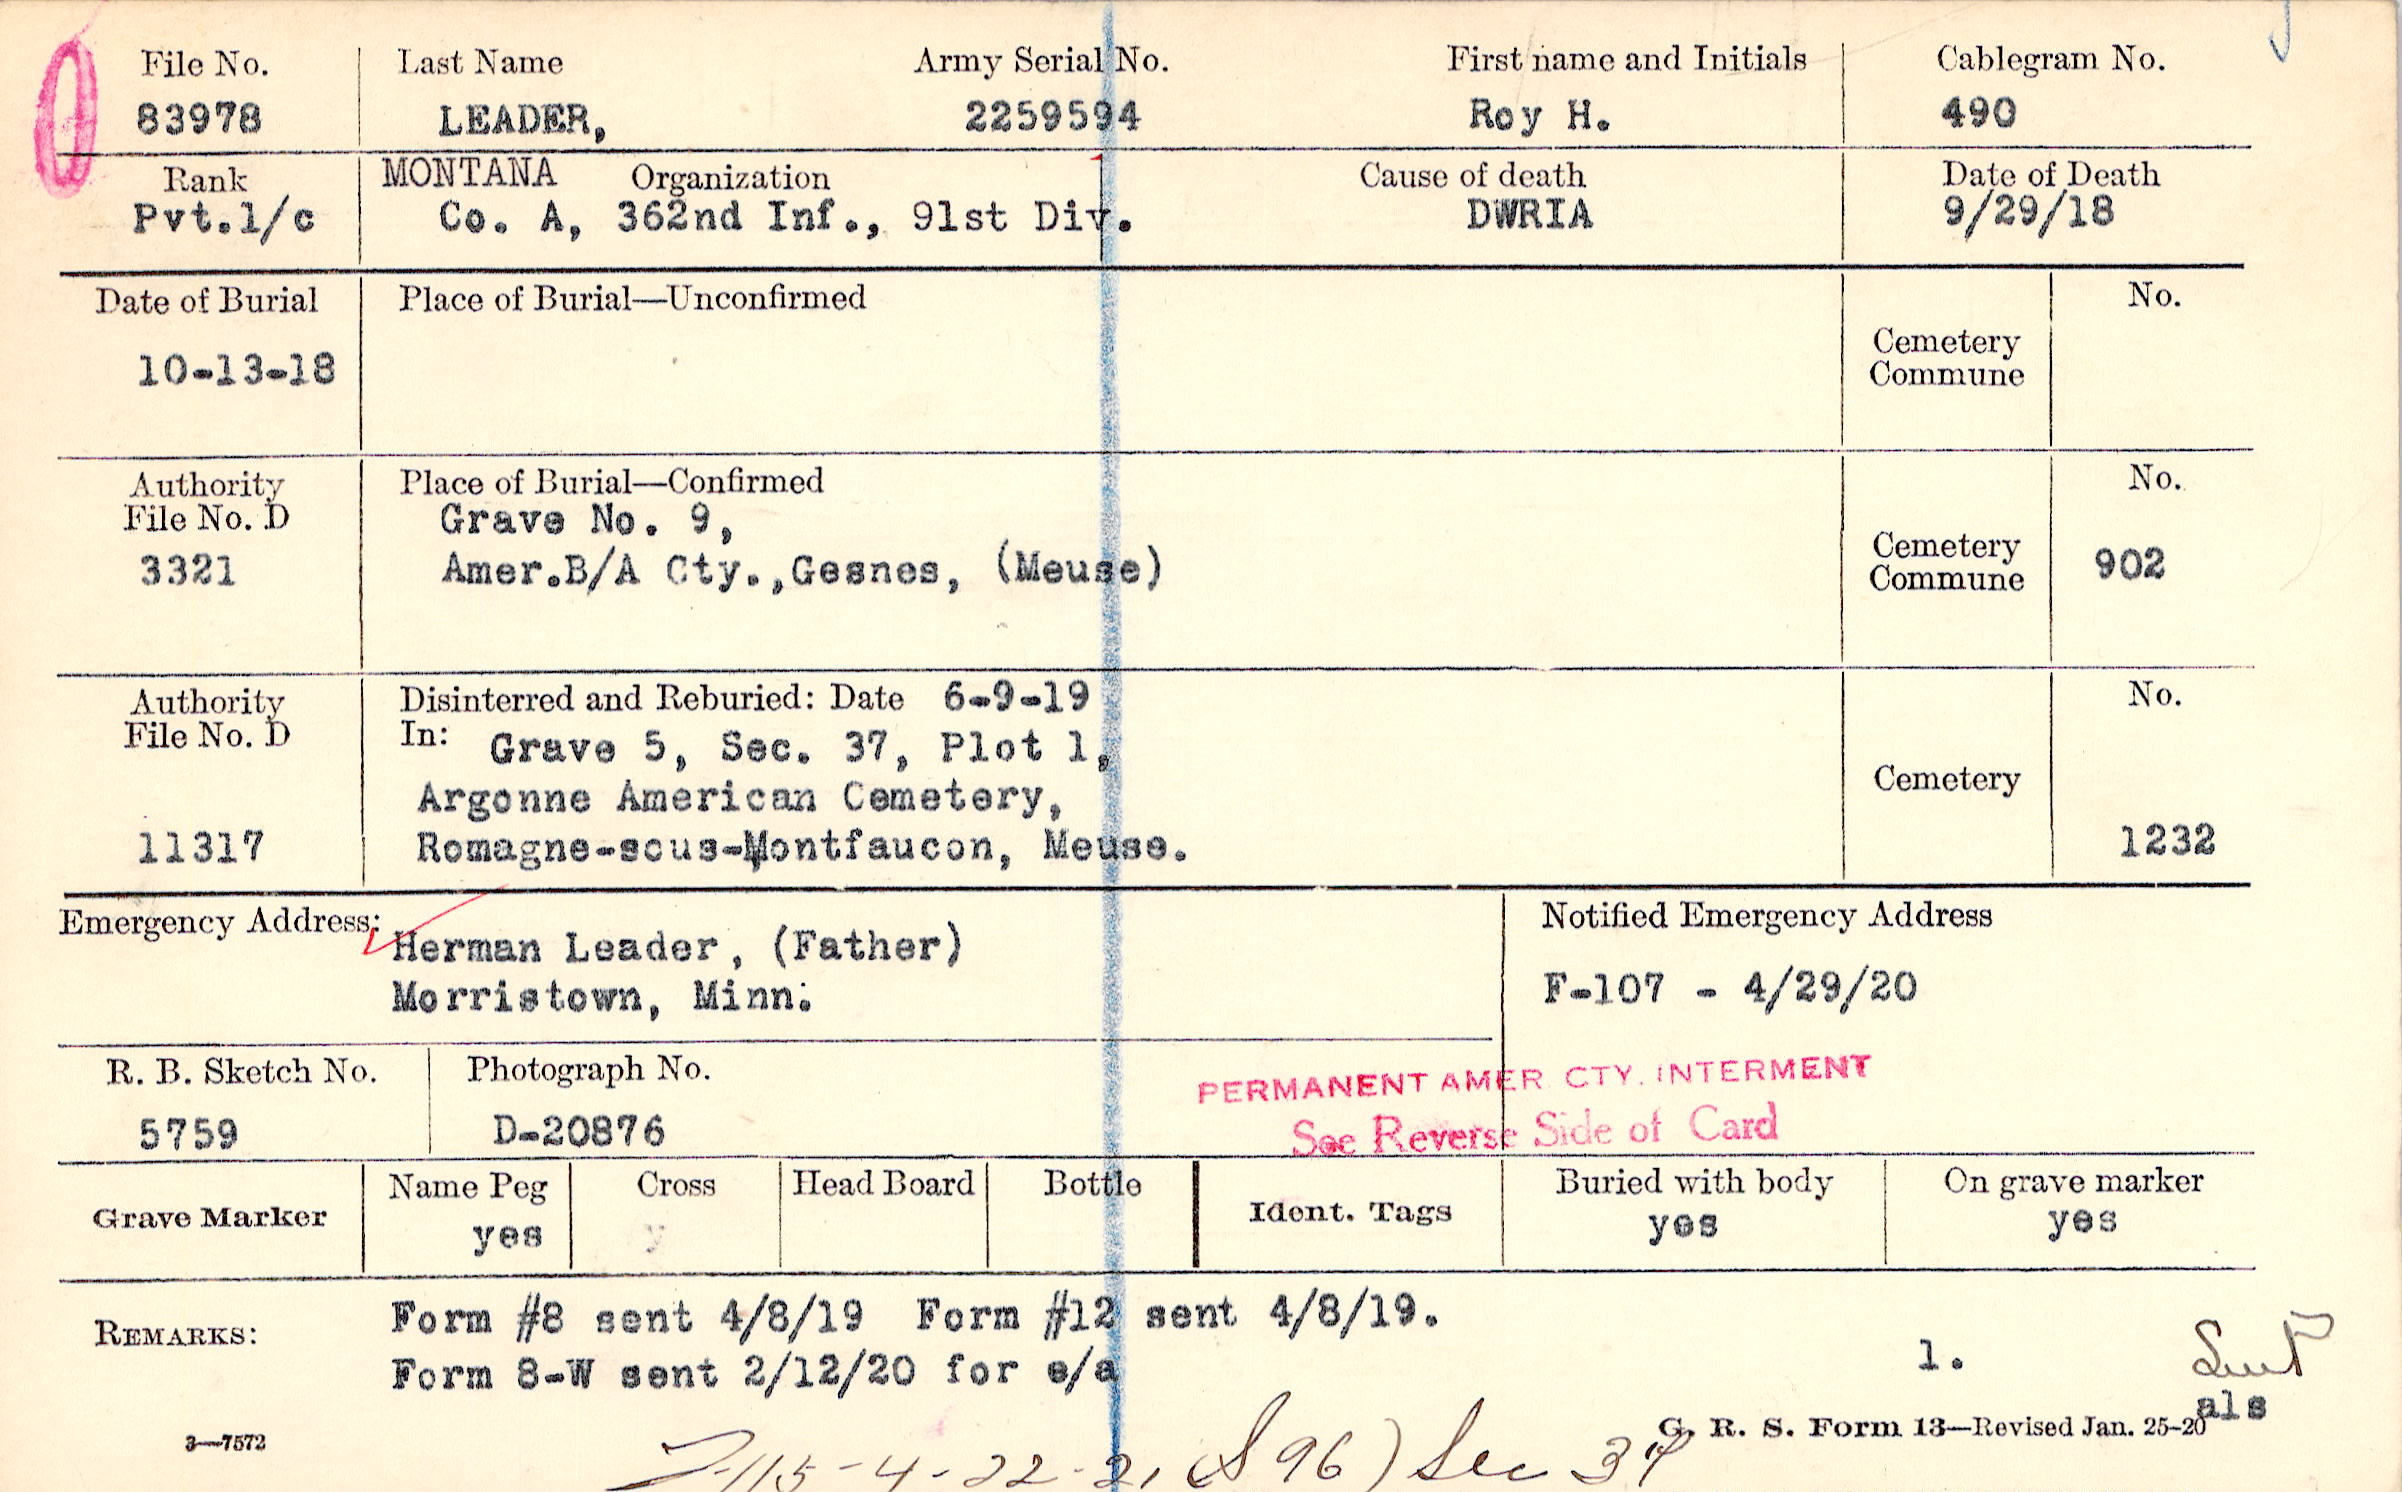 File No. Last Name Army Serial No. First name and Initials Cablegram No.
83978 LEADER, 2259594 Roy H. 490
Rank MONTANA Organization Cause of death Date of Death
Pvt.1/c Co. A, 362nd Inf., 91st Div. DWRIA 9/29/18
Date of Burial Place of Burial—Unconfirmed No.
Cemetery
Commune
10-13-18
Authority Place of Burial—Confirmed No.
File No. D Grave No. 9,
3321 Amer.B/A Cty.,Gesnes, (Meuse) Cemetery Commune 902
Authority Disinterred and Reburied: Date 6-9-19 No.
File No. D In: Grave 5, Sec. 37, Plot 1,
Argonne American Cemetery, Cemetery
11317 Romagne-sous-Montfaucon, Meuse. 1232
Emergency Address: Notified Emergency Address
Herman Leader, (Father)
Morristown, Minn. F-107 - 4/29/20
R. B. Sketch No. Photograph No. PERMANENT AMER CTY. INTERMENT
5759 D-20876 See Reverse Side of Card
Grave Marker Name Peg Cross Head Board Bottle Ident. Tags Buried with body On grave marker
yes y yes yes
REMARKS: Form #8 sent 4/8/19 Form #12 sent 4/8/19.
Form 8-W sent 2/12/20 for e/a 1.
als
3—7572 G. R. S. Form 13—Revised Jan. 25-20
115-4-22-21 (S 96) Sec 37